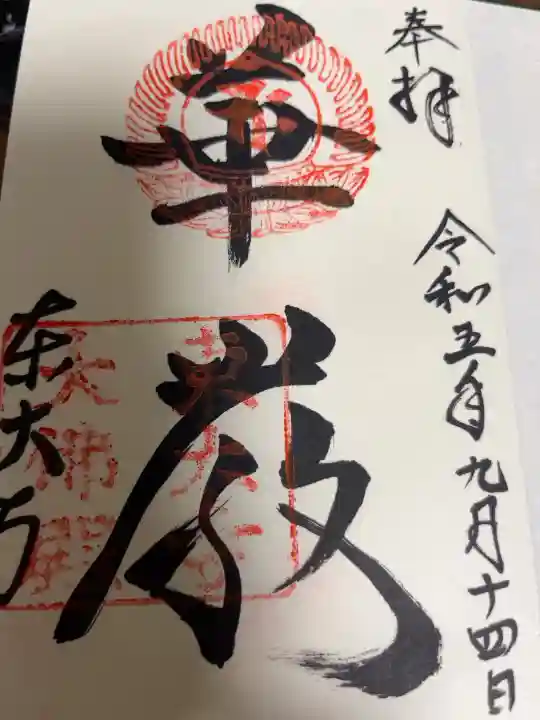 奉拝
令和五年九月十四日
華厳
東大寺